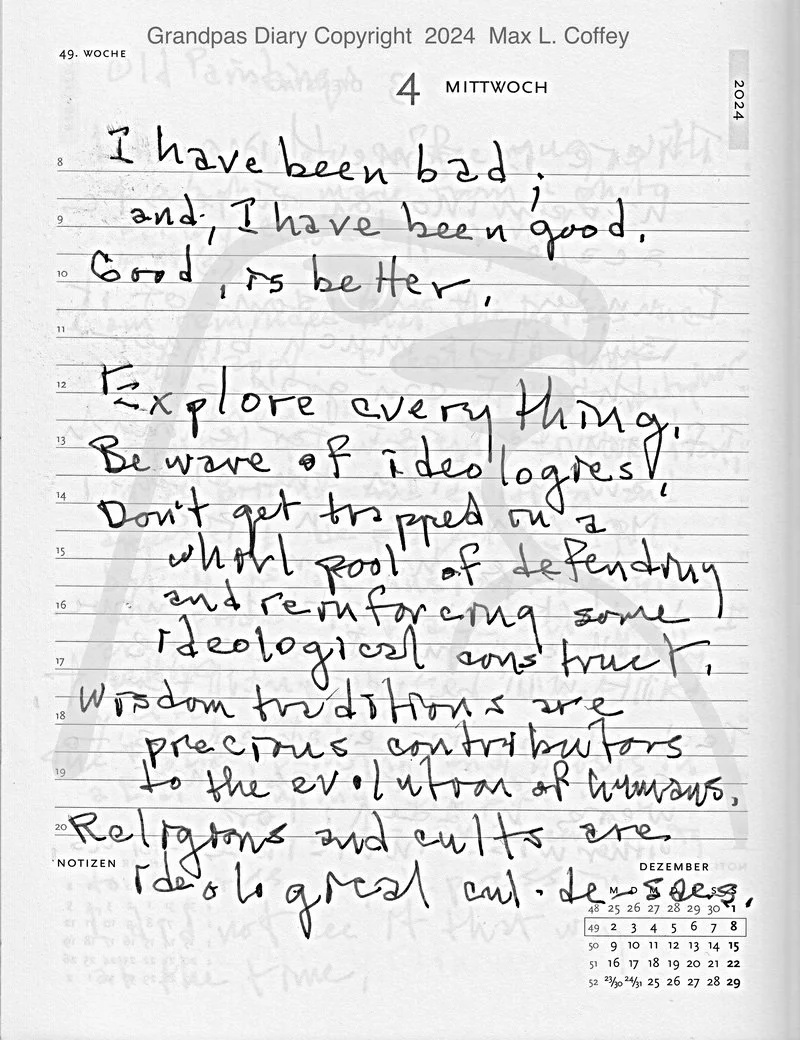 Grandpas Diary Copyright 2024 Max L. Coffey
49. WOCHE
4 MITTWOCH
2024
8
I have been bad ;
9
and, I have been good.
10
Good, is better.
11
12
Explore every thing.
13
Be ware of ideologies!
14
Don't get trapped in a
15
whirl pool of defending
16
and reinforcing some
17
ideological construct.
18
Wisdom traditions are
precious contributors
19
to the evolution of humans.
20
Religions and cults are
NOTIZEN
ideological cul-de-sacs.
DEZEMBER
M D M D F S S
48 25 26 27 28 29 30 1
49 2 3 4 5 6 7 8
50 9 10 11 12 13 14 15
51 16 17 18 19 20 21 22
52 23/30 24/31 25 26 27 28 29